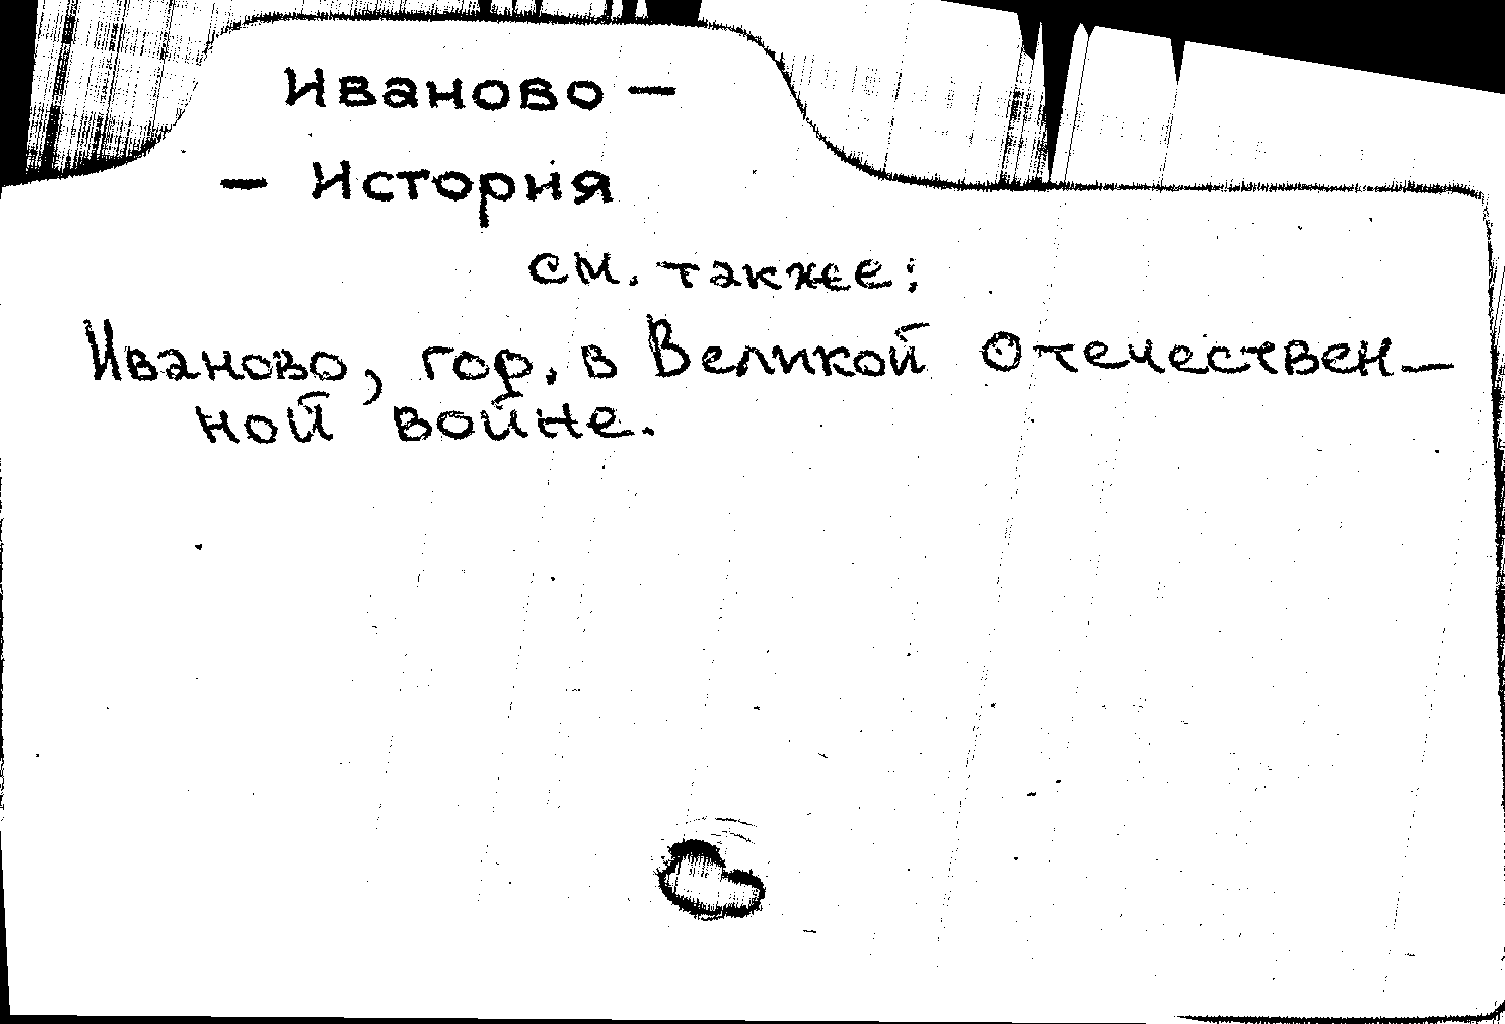 Иваново —
— История
см. также:
Иваново, гор. в Великой Отечествен—
ной войне.